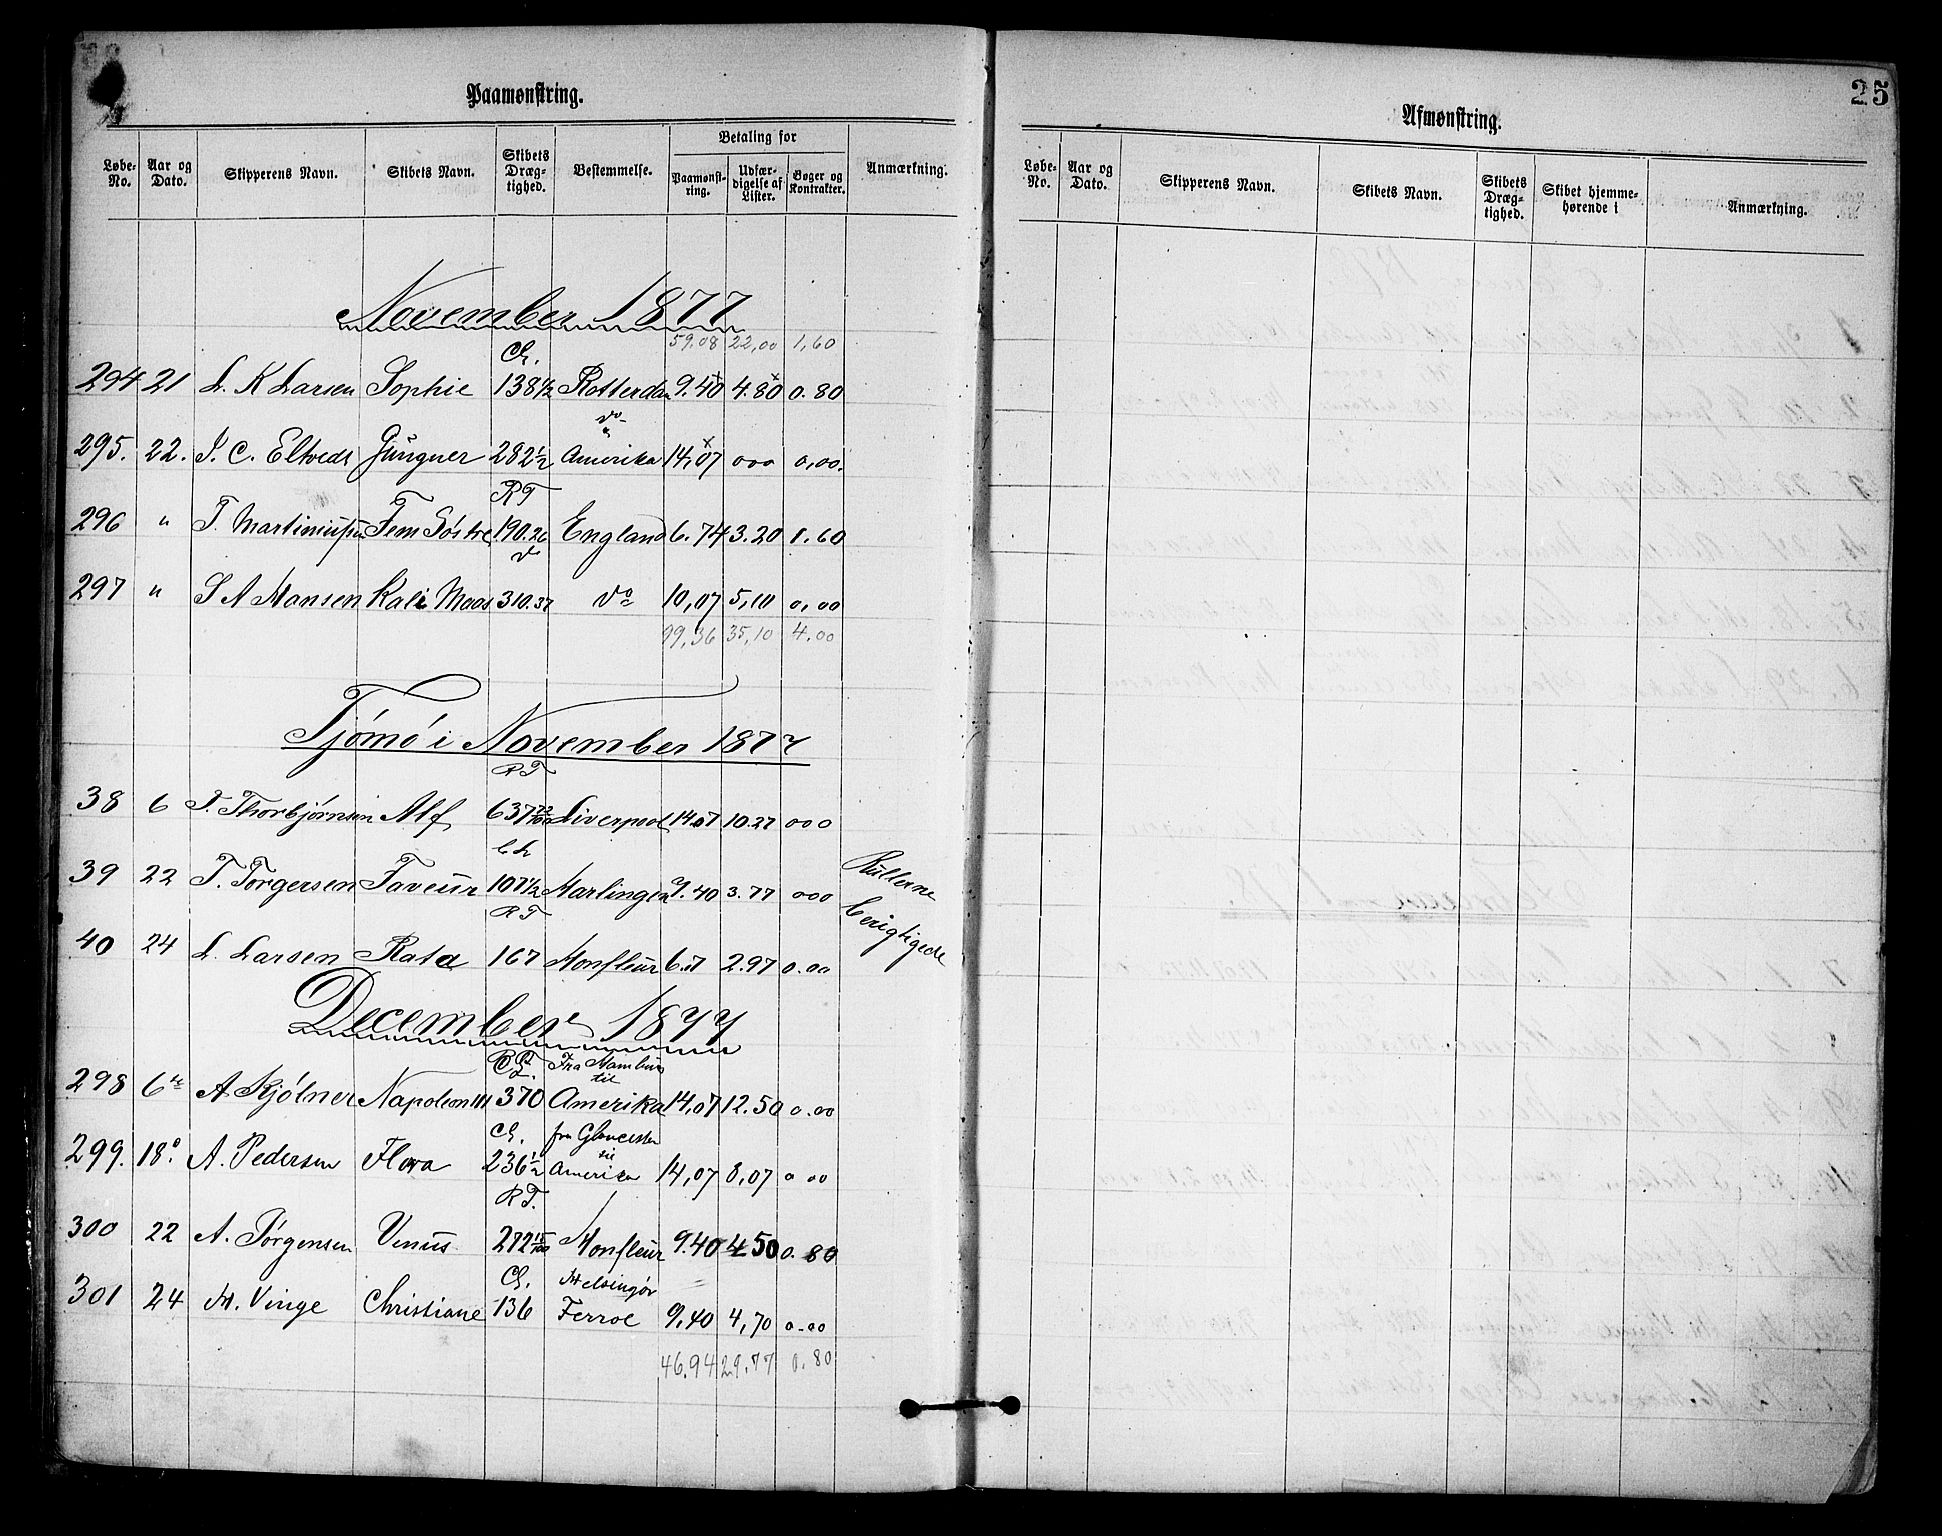 Paamønstring.
Løbe-No. Aar og Dato. Skipperens Navn. Skibets Navn. Skibets Dræg-tighed. Bestemmelse. Betaling for Paamønst-ring. Udfær-digelse af Lister. Bøger og Kontrakter. Anmærkning.
November 1877
59.08 22,00 1,60
Cl.
294 21 L. K Larsen Sophie 138½ Rotterdam 9.40 4.80 0.80
do
295. 22. J. C. Eltvedt Gungner 282½ Amerika 14,07 000 0,00.
RT
296 " T. Martiniussen Fem Søstre 190.26 England 6.74 3.20 1.60
do
297 " S A Hansen Kali Maas 310.37 do 10,07 5,10 0,00
99,36 35,10 4.00
Tjømø i November 1877
RT
38 6 T. Thorbjørnsen Alf 637 72/100 Liverpool 14.07 10.27 000
Cl
39 22 T. Torgersen Faveur 107½ Harlingen 9.40 3.77 000 Rullerne
RT
berigtigede
40 24 L. Larsen Rata 167 Honfleur 6.7 2.97 0.00
December 1877
Fra Hamburg
til
298 6te A Kjølner Napoleon III 370 Amerika 14,07 12.50 0.00
Cl. fra Gloucester
til
299. 18. A. Pedersen Flora 236½ Amerika 14,07 8,07 0 00
RT.
300 22 A. Jørgensen Venus 272 15/100 Honfleur 9.40 4.50 0.80
Cl. Helsingør
301 24 H. Vinge Christiane 136 Ferroe 9,40 4,70 0.00
46.94 29.77 0.80
25
Afmønstring.
Løbe-No. Aar og Dato. Skipperens Navn. Skibets Navn. Skibets Dræg-tighed. Skibet hjemme-hørende i Anmærkning.